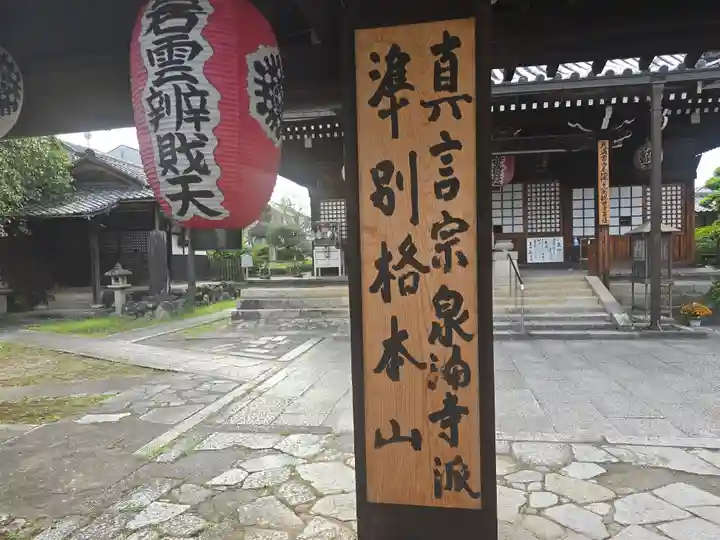 真言宗泉涌寺派
準別格本山
岩雲辨戝天